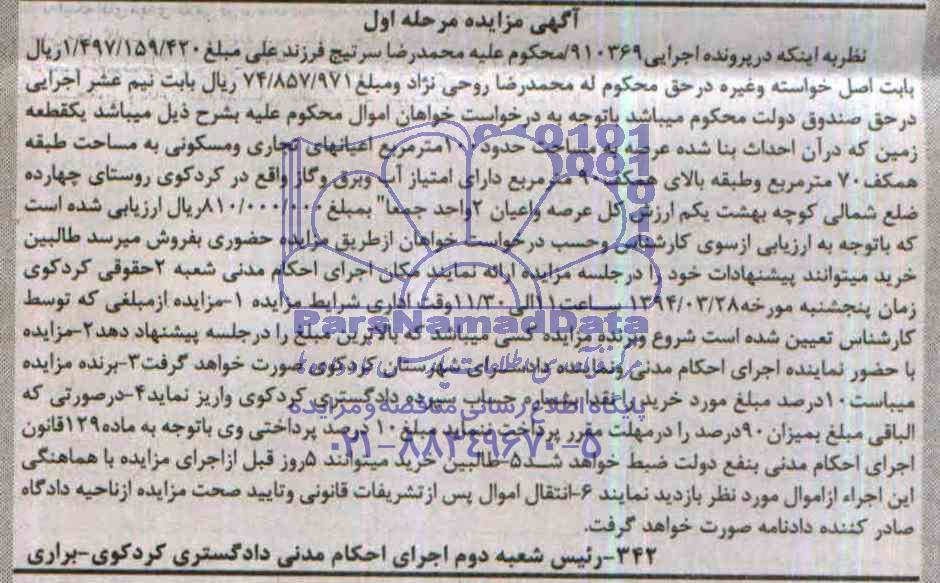 آگهی مزایده مرحله اول
نظربه اینکه درپرونده اجرایی۹۱۰۳۶۹/محکوم علیه محمدرضا سرتیج فرزند علی مبلغ ۱/۴۹۷/۱۵۹/۴۲۰ریال
بابت اصل خواسته وغیره درحق محکوم له محمدرضا روحی نژاد ومبلغ۷۴/۸۵۷/۹۷۱ ریال بابت نیم عشر اجرایی
درحق صندوق دولت محکوم میباشد باتوجه به درخواست خواهان اموال محکوم علیه بشرح ذیل میباشد یکقطعه
زمین که درآن احداث بنا شده عرصه به مساحت حدود۱۰۰مترمربع اعیانهای تجاری ومسکونی به مساحت طبقه
همکف۷۰ مترمربع وطبقه بالای همکف۹۰ مترمربع دارای امتیاز آب وبرق وگاز واقع در کردکوی روستای چهارده
ضلع شمالی کوچه بهشت یکم ارزش کل عرصه واعیان ۲واحد جمعا" بمبلغ ۸۱۰/۰۰۰/۰۰۰ریال ارزیابی شده است
که باتوجه به ارزیابی ازسوی کارشناس وحسب درخواست خواهان ازطریق مزایده حضوری بفروش میرسد طالبین
خرید میتوانند پیشنهادات خود را درجلسه مزایده ارائه نمایند مکان اجرای احکام مدنی شعبه ۲حقوقی کردکوی
زمان پنجشنبه مورخه۱۳۹۴/۰۳/۲۸ساعت۱۱الی ۱۱/۳۰وقت اداری شرایط مزایده ۱-مزایده ازمبلغی که توسط
کارشناس تعیین شده است شروع وبرنده مزایده کسی میباشد که بالاترین مبلغ را درجلسه پیشنهاد دهد۲-مزایده
با حضور نماینده اجرای احکام مدنی ونماینده دادسرای شهرستان کردکوی صورت خواهد گرفت۳-برنده مزایده
میباست۱۰درصد مبلغ مورد خرید را نقدا بشماره حساب سپرده دادگستری کردکوی واریز نماید۴-درصورتی که
الباقی مبلغ بمیزان ۹۰درصد را درمهلت مقرر پرداخت ننماید مبلغ۱۰ درصد پرداختی وی باتوجه به ماده۱۲۹قانون
اجرای احکام مدنی بنفع دولت ضبط خواهد شد۵-طالبین خرید میتوانند ۵روز قبل ازاجرای مزایده با هماهنگی
این اجراء ازاموال مورد نظر بازدید نمایند ۶-انتقال اموال پس ازتشریفات قانونی وتایید صحت مزایده ازناحیه دادگاه
صادر کننده دادنامه صورت خواهد گرفت.
۳۴۲-رئیس شعبه دوم اجرای احکام مدنی دادگستری کردکوی-براری
ParsNamadData
پایگاه اطلاع رسانی مناقصه و مزایده
۰۲۱-۸۸۳۴۹۶۷۰-۵